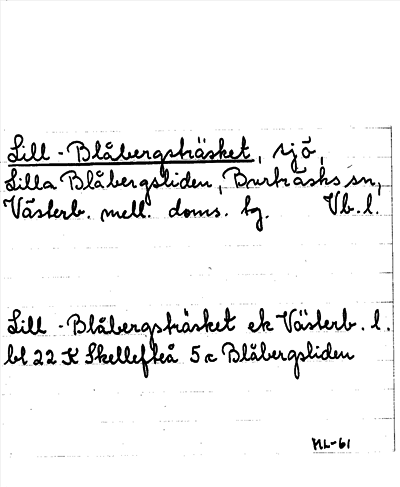 Lill - Blåbergsträsket, sjö,
Lilla Blåbergsliden, Burträsks sn,
Västerb. mell. doms. hg. Vb. l.
Lill - Blåbergsträsket ek Västerb. l.
bl 22 K Skellefteå 5 c Blåbergsliden
ML-61